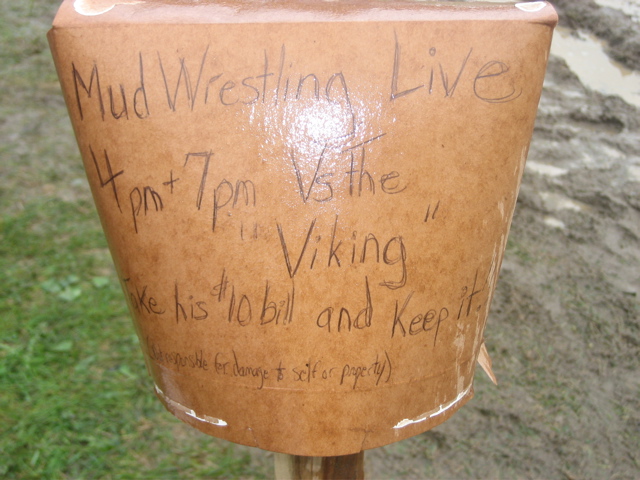 Mud Wrestling Live
4pm + 7pm Vs The
"Viking"
Take his $10 bill and Keep it.
(Not responsible for damage to self or property)